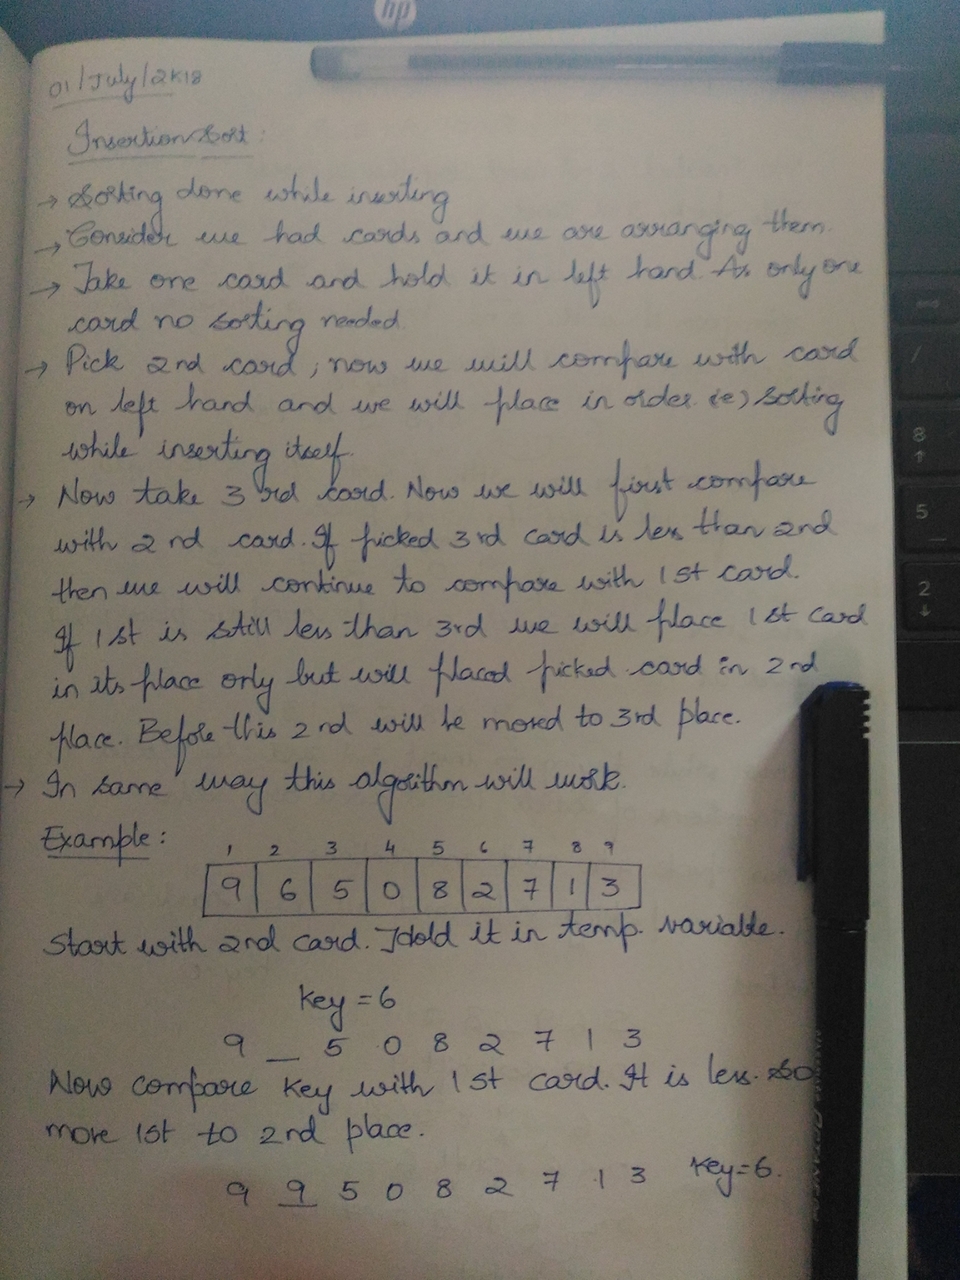 hp
01/July/2K18
Insertion Sort:
→ Sorting done while inserting
→ Consider we had cards and we are arranging them.
→ Take one card and hold it in left hand. As only one
card no sorting needed.
→ Pick 2nd card; now we will compare with card
on left hand and we will place in order. ie) sorting
while inserting itself.
→ Now take 3rd card. Now we will first compare
with 2nd card. If picked 3rd card is less than 2nd
then we will continue to compare with 1st card.
If 1st is still less than 3rd we will place 1st card
in its place only but will placed picked card in 2nd
place. Before this 2nd will be moved to 3rd place.
→ In same way this algorithm will work.
Example:
1 2 3 4 5 6 7 8 9
9 6 5 0 8 2 7 1 3
Start with 2nd card. Hold it in temp. variable.
key = 6
9 _ 5 0 8 2 7 1 3
Now compare key with 1st card. It is less. So
move 1st to 2nd place.
9 9 5 0 8 2 7 1 3 key=6.
end
/
8
↑
5
2
↓